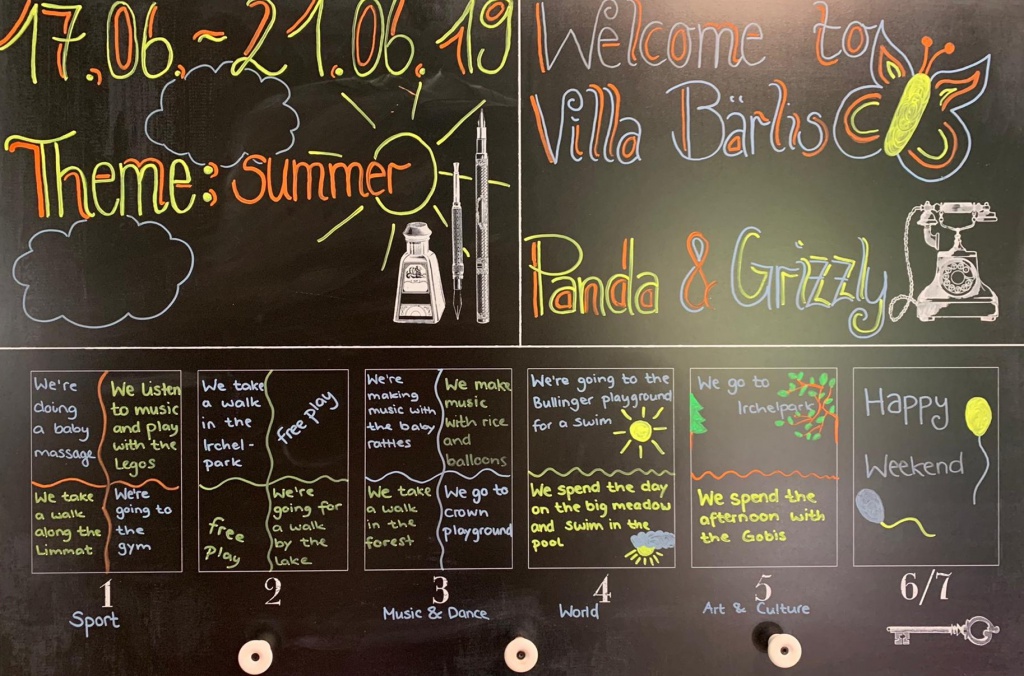 17.06. - 21.06.19
Theme: summer
Welcome to
Villa Bärlis
Panda & Grizzly
We're
doing
a baby
massage
We listen
to music
and play
with the
Legos
We take
a walk
along the
Limmat
We're
going to
the
gym
1
Sport
We take
a walk
in the
Irchel-
park
free play
free
play
We're
going for
a walk
by the
lake
2
We're
making
music with
the baby
rattles
We make
music
with rice
and
balloons
We take
a walk
in the
forest
We go to
crown
playground
3
Music & Dance
We're going to the
Bullinger playground
for a swim
We spend the day
on the big meadow
and swim in the
pool
4
World
We go to
Irchelpark
We spend the
afternoon with
the Gobis
5
Art & Culture
Happy
Weekend
6/7